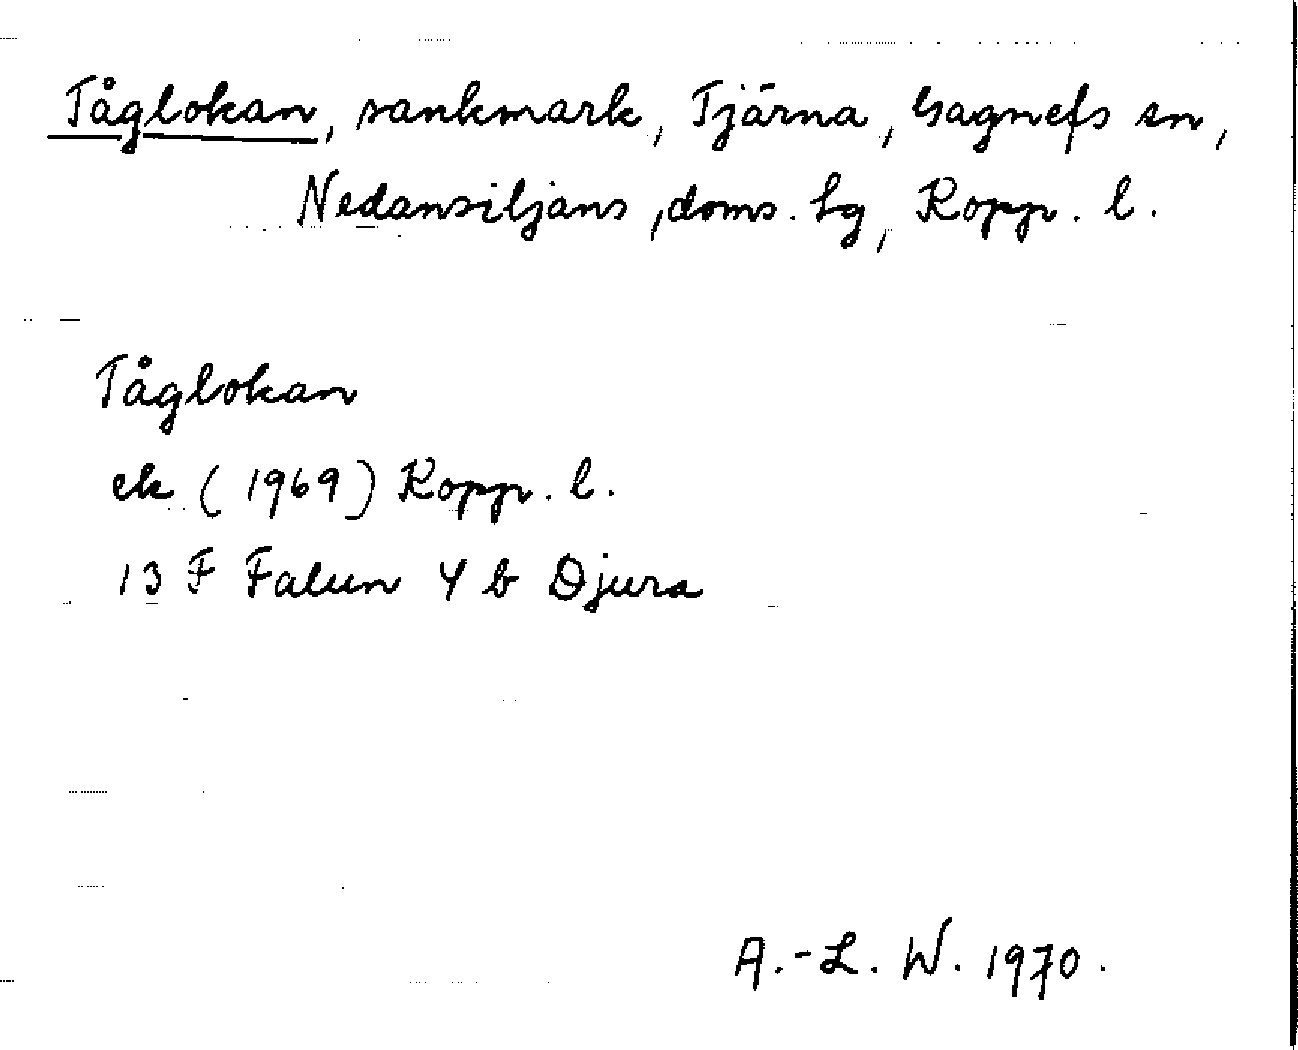 Tåglokan, sankmark, Tjärna, Gagnefs sn,
Nedansiljans doms. hg, Kopp. l.
Tåglokan
ek (1969) Kopp. l.
13 F Falun 4 b Djura
A.-L. W. 1970.